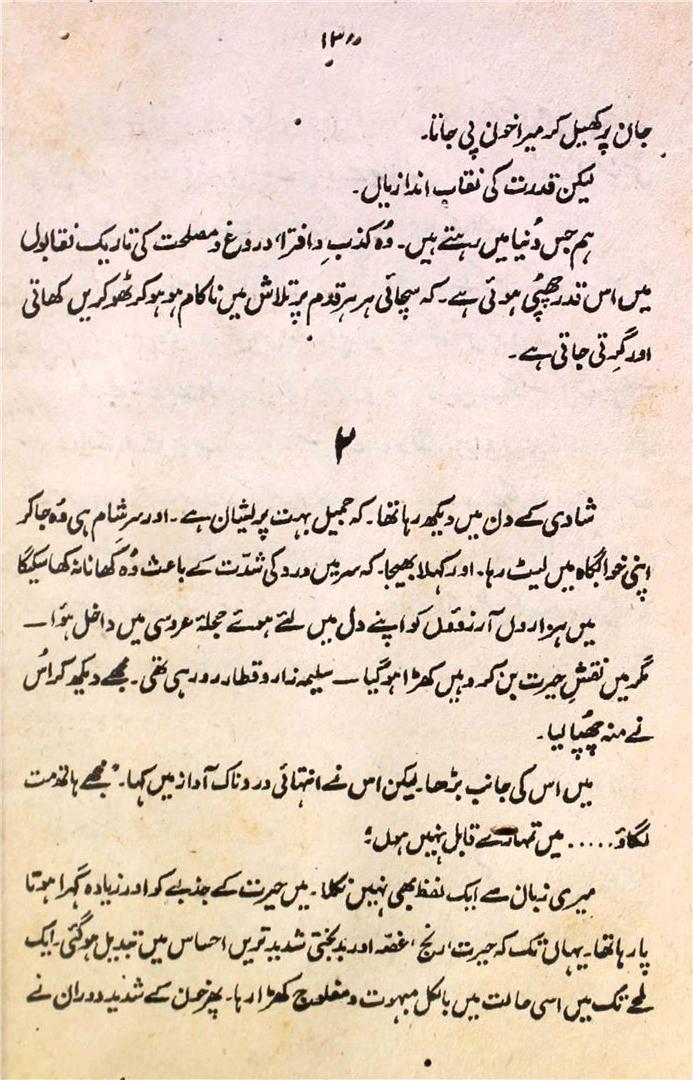 ۱۳۰
جان پر کھیل کر میرا خون پی جانا۔
لیکن قدرت کی نقاب اندازیاں۔
ہم جس دُنیا میں رہتے ہیں۔ وُہ کذب و افترا، دروغ و مصلحت کی تاریک نقابوں
میں اس قدر چھپی ہوئی ہے۔ کہ سچائی ہر ہر قدم پر تلاش میں ناکام ہو ہو کر ٹھوکریں کھاتی
اور گرتی جاتی ہے۔
۲
شادی کے دن میں دیکھ رہا تھا۔ کہ جمیل بہت پریشان ہے۔ اور سرِ شام ہی وُہ جا کر
اپنی خوابگاہ میں لیٹ رہا۔ اور کہلا بھیجا۔ کہ سر میں درد کی شدّت کے باعث وُہ کھانا نہ کھا سکیگا
میں ہزاروں آرزوؤں کو اپنے دل میں لئے ہوئے حجلۂ عروسی میں داخل ہؤا —
مگر میں نقشِ حیرت بن کر وہیں کھڑا ہو گیا — سلیمہ زار و قطار رو رہی تھی۔ مجھے دیکھ کر اُس
نے منہ چھپا لیا۔
میں اس کی جانب بڑھا۔ لیکن اس نے انتہائی دردناک آواز میں کہا۔ "مجھے ہاتھ مت
لگاؤ..... میں تمہارے قابل نہیں ہوں"
میری زبان سے ایک لفظ بھی نہیں نکلا۔ میں حیرت کے جذبے کو اور زیادہ گہرا ہوتا
پا رہا تھا۔ یہاں تک کہ حیرت، رنج، غصّہ اور بدبختی شدید ترین احساس میں تبدیل ہو گئی۔ ایک
لمحے تک میں اسی حالت میں بالکل مبہوت و مفلوج کھڑا رہا۔ پھر خون کے شدید دوران نے